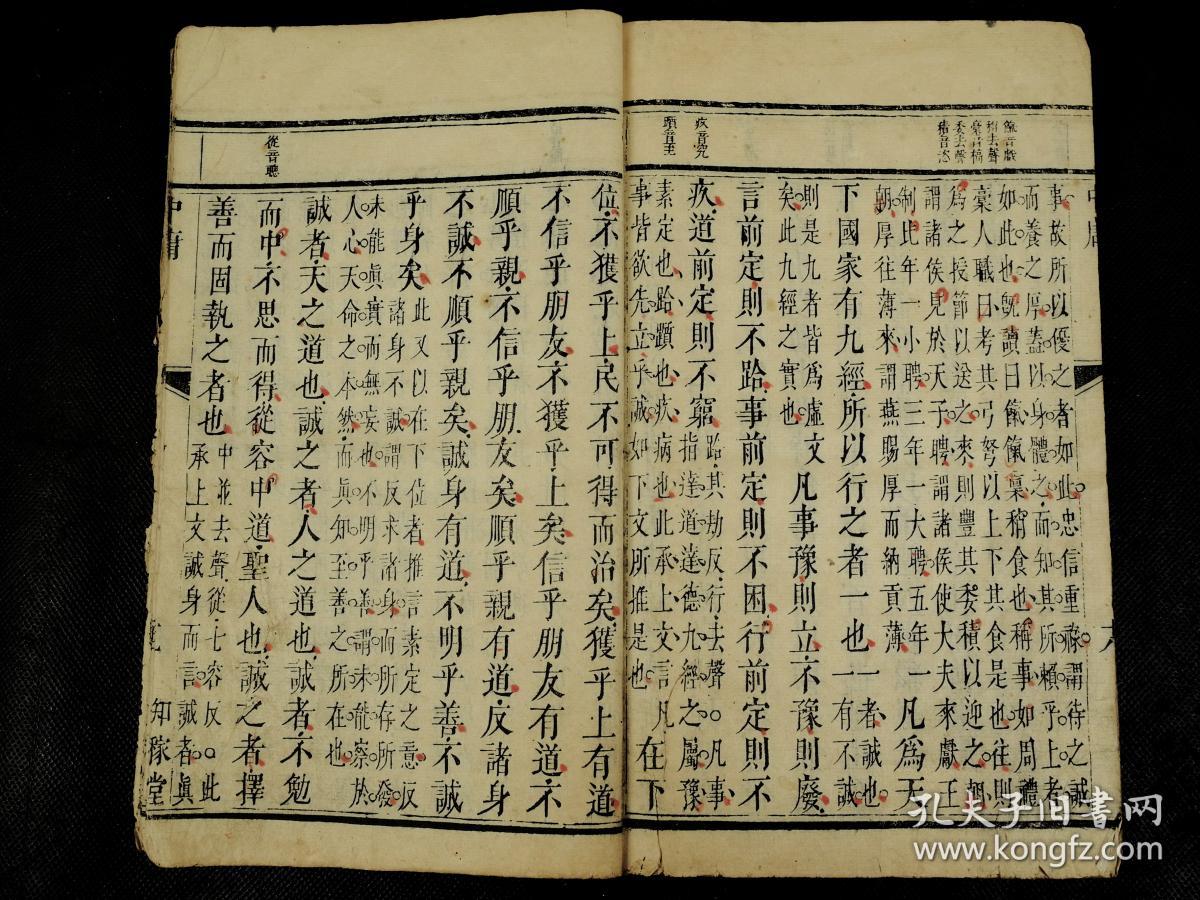 餼音戲
稱去聲
稾音稿
委去聲
積音恣
疚音究
躓音至
中庸
事故所以優之者如此忠信重祿謂待之誠
而養之厚蓋以身體之而知其所賴乎上者
如此也旣讀曰餼餼稟稍食也稱事如周禮
稾人職曰考其弓弩以上下其食是也往則
爲之授節以送之來則豐其委積以迎之朝
謂諸侯見於天子聘謂諸侯使大夫來獻王
制比年一小聘三年一大聘五年一
朝厚往薄來謂燕賜厚而納貢薄
凡爲天
下國家有九經所以行之者一也
一者誠也
一有不誠
則是九者皆爲虛文
矣此九經之實也
凡事豫則立不豫則廢
言前定則不跲事前定則不困行前定則不
疚道前定則不窮
跲其劫反行去聲○凡事
指達道達德九經之屬豫
素定也跲躓也疚病也此承上文言凡
事皆欲先立乎誠如下文所推是也
在下
從音聰
位不獲乎上民不可得而治矣獲乎上有道
不信乎朋友不獲乎上矣信乎朋友有道不
順乎親不信乎朋友矣順乎親有道反諸身
不誠不順乎親矣誠身有道不明乎善不誠
乎身矣
此又以在下位者推言素定之意反
諸身不誠謂反求諸身而所存所發
未能眞實而無妄也不明乎善謂未能察於
人心天命之本然而眞知至善之所在也
誠者天之道也誠之者人之道也誠者不勉
而中不思而得從容中道聖人也誠之者擇
善而固執之者也
中並去聲從七容反○此
承上文誠身而言誠者眞
中庸
知稼堂
孔夫子旧书网
www.kongfz.com